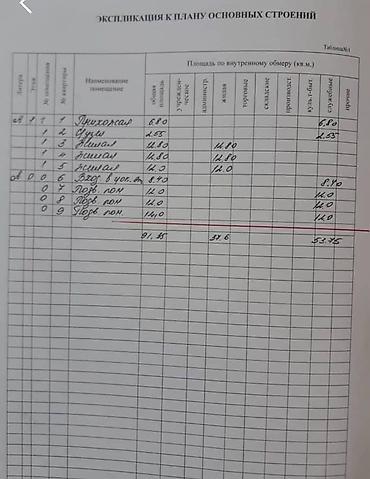 ЭКСПЛИКАЦИЯ К ПЛАНУ ОСНОВНЫХ СТРОЕНИЙ
Таблица№1
Литера Этаж № помещения № квартиры Наименование помещение Площадь по внутреннему обмеру (кв.м.)
общая площадь учрежден-ческое администр. жилая торговые складские производст. культ-быт. служебные прочие
А 1 1 1 Прихожая 6,80 6,80
1 2 С/узел 2,55 2,55
1 3 Жилая 12,80 12,80
1 4 Жилая 12,80 12,80
1 5 Жилая 12,0 12,0
А 0 0 6 Вход в цок. 8,40 8,40
0 7 Подв. пом 12,0 12,0
0 8 Подв. пом 12,0 12,0
0 9 Подв. пом. 12,0
91,35 37,6 53,75